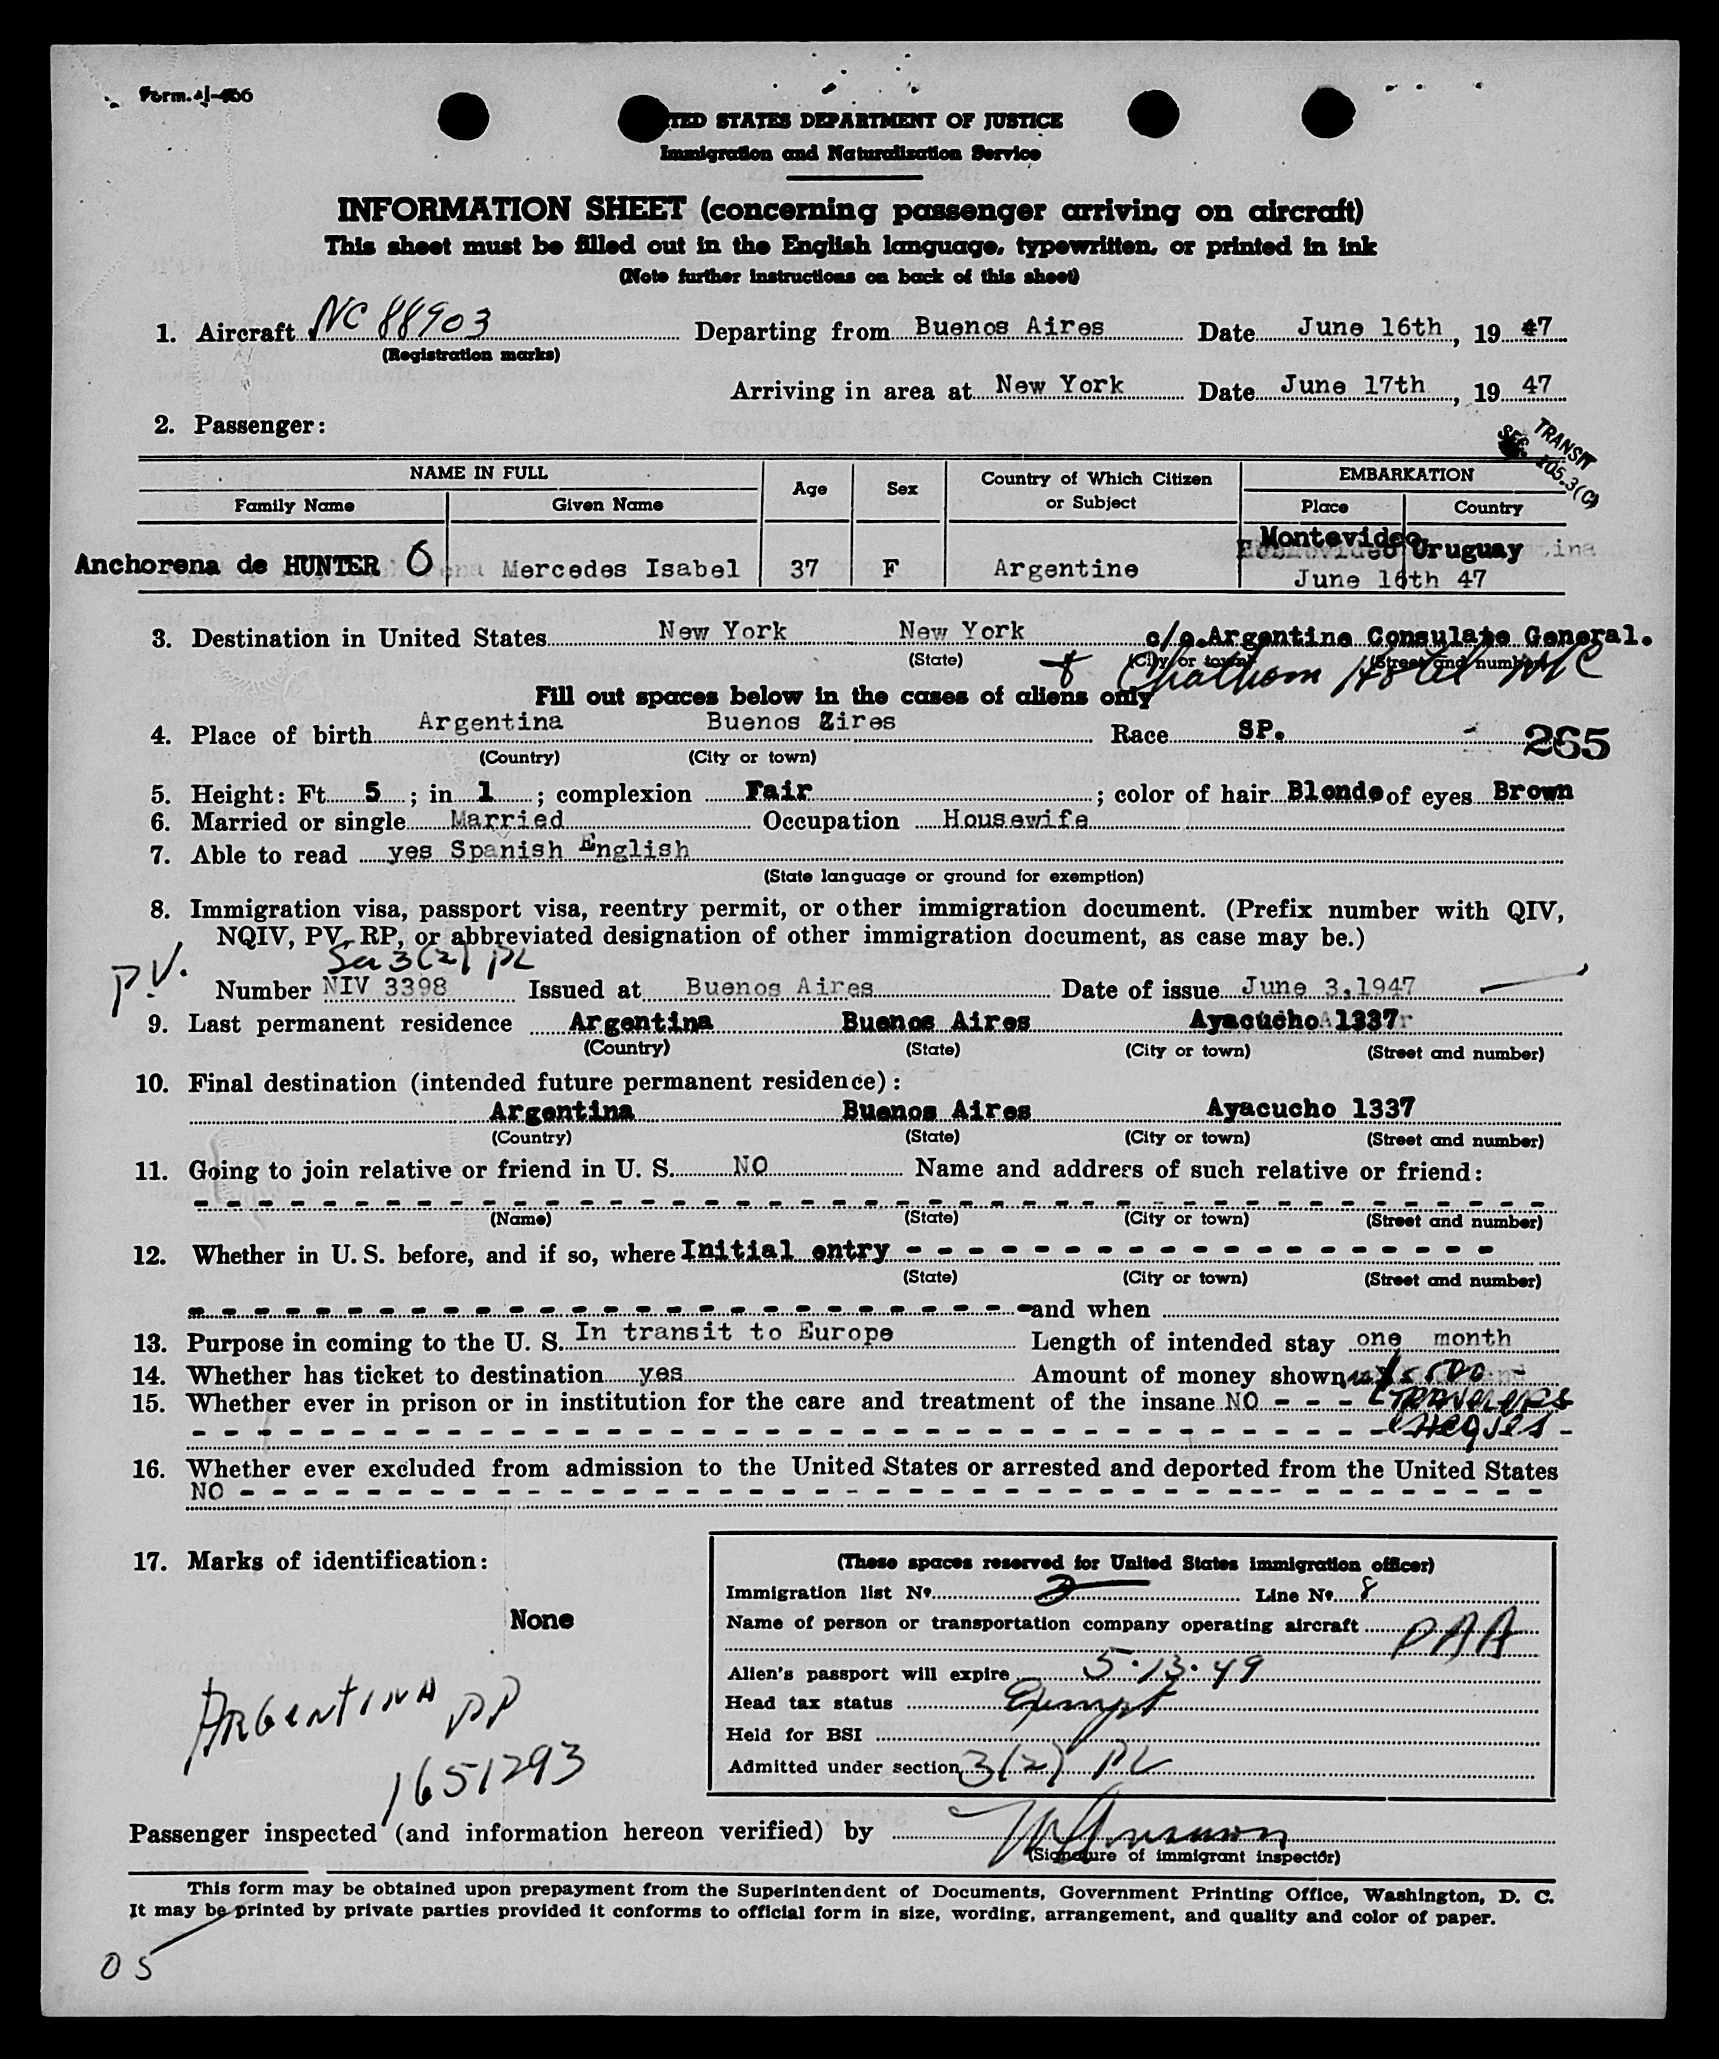 Form. I-466
UNITED STATES DEPARTMENT OF JUSTICE
Immigration and Naturalization Service
INFORMATION SHEET (concerning passenger arriving on aircraft)
This sheet must be filled out in the English language, typewritten, or printed in ink
(Note further instructions on back of this sheet)
1. Aircraft NC 88903 Departing from Buenos Aires Date June 16th, 19 47
(Registration marks)
Arriving in area at New York Date June 17th, 19 47
2. Passenger:
TRANSIT
SEC. 105.3(C)
NAME IN FULL Age Sex Country of Which Citizen or Subject EMBARKATION
Family Name Given Name Place Country
Anchorena de HUNTER 6 Mercedes Isabel 37 F Argentine Montevideo Uruguay
June 16th 47
3. Destination in United States New York New York c/o.Argentine Consulate General.
(State) (City or town) (Street and number)
Chatham Hotel NYC
Fill out spaces below in the cases of aliens only
4. Place of birth Argentina Buenos Zires Race SP. 265
(Country) (City or town)
5. Height: Ft. 5; in 1; complexion Fair; color of hair Blonde of eyes Brown
6. Married or single Married Occupation Housewife
7. Able to read yes Spanish English
(State language or ground for exemption)
8. Immigration visa, passport visa, reentry permit, or other immigration document. (Prefix number with QIV,
NQIV, PV, RP, or abbreviated designation of other immigration document, as case may be.)
P.V. Sec 3(2) PL
Number NIV 3398 Issued at Buenos Aires Date of issue June 3,1947
9. Last permanent residence Argentina Buenos Aires Ayacucho 1337
(Country) (State) (City or town) (Street and number)
10. Final destination (intended future permanent residence):
Argentina Buenos Aires Ayacucho 1337
(Country) (State) (City or town) (Street and number)
11. Going to join relative or friend in U. S. NO Name and address of such relative or friend:
(Name) (State) (City or town) (Street and number)
12. Whether in U. S. before, and if so, where Initial entry
(State) (City or town) (Street and number)
and when
13. Purpose in coming to the U. S. In transit to Europe Length of intended stay one month
14. Whether has ticket to destination yes Amount of money shown 500
15. Whether ever in prison or in institution for the care and treatment of the insane NO - - - TRAVELERS
CHEQUES
16. Whether ever excluded from admission to the United States or arrested and deported from the United States
NO
17. Marks of identification:
None
ARGENTINA PP
1651293
(These spaces reserved for United States immigration officer)
Immigration list No. 3 Line No. 8
Name of person or transportation company operating aircraft PAA
Alien's passport will expire 5.13.49
Head tax status Exempt
Held for BSI
Admitted under section 3(2) PL
Passenger inspected (and information hereon verified) by
(Signature of immigrant inspector)
This form may be obtained upon prepayment from the Superintendent of Documents, Government Printing Office, Washington, D. C.
It may be printed by private parties provided it conforms to official form in size, wording, arrangement, and quality and color of paper.
05